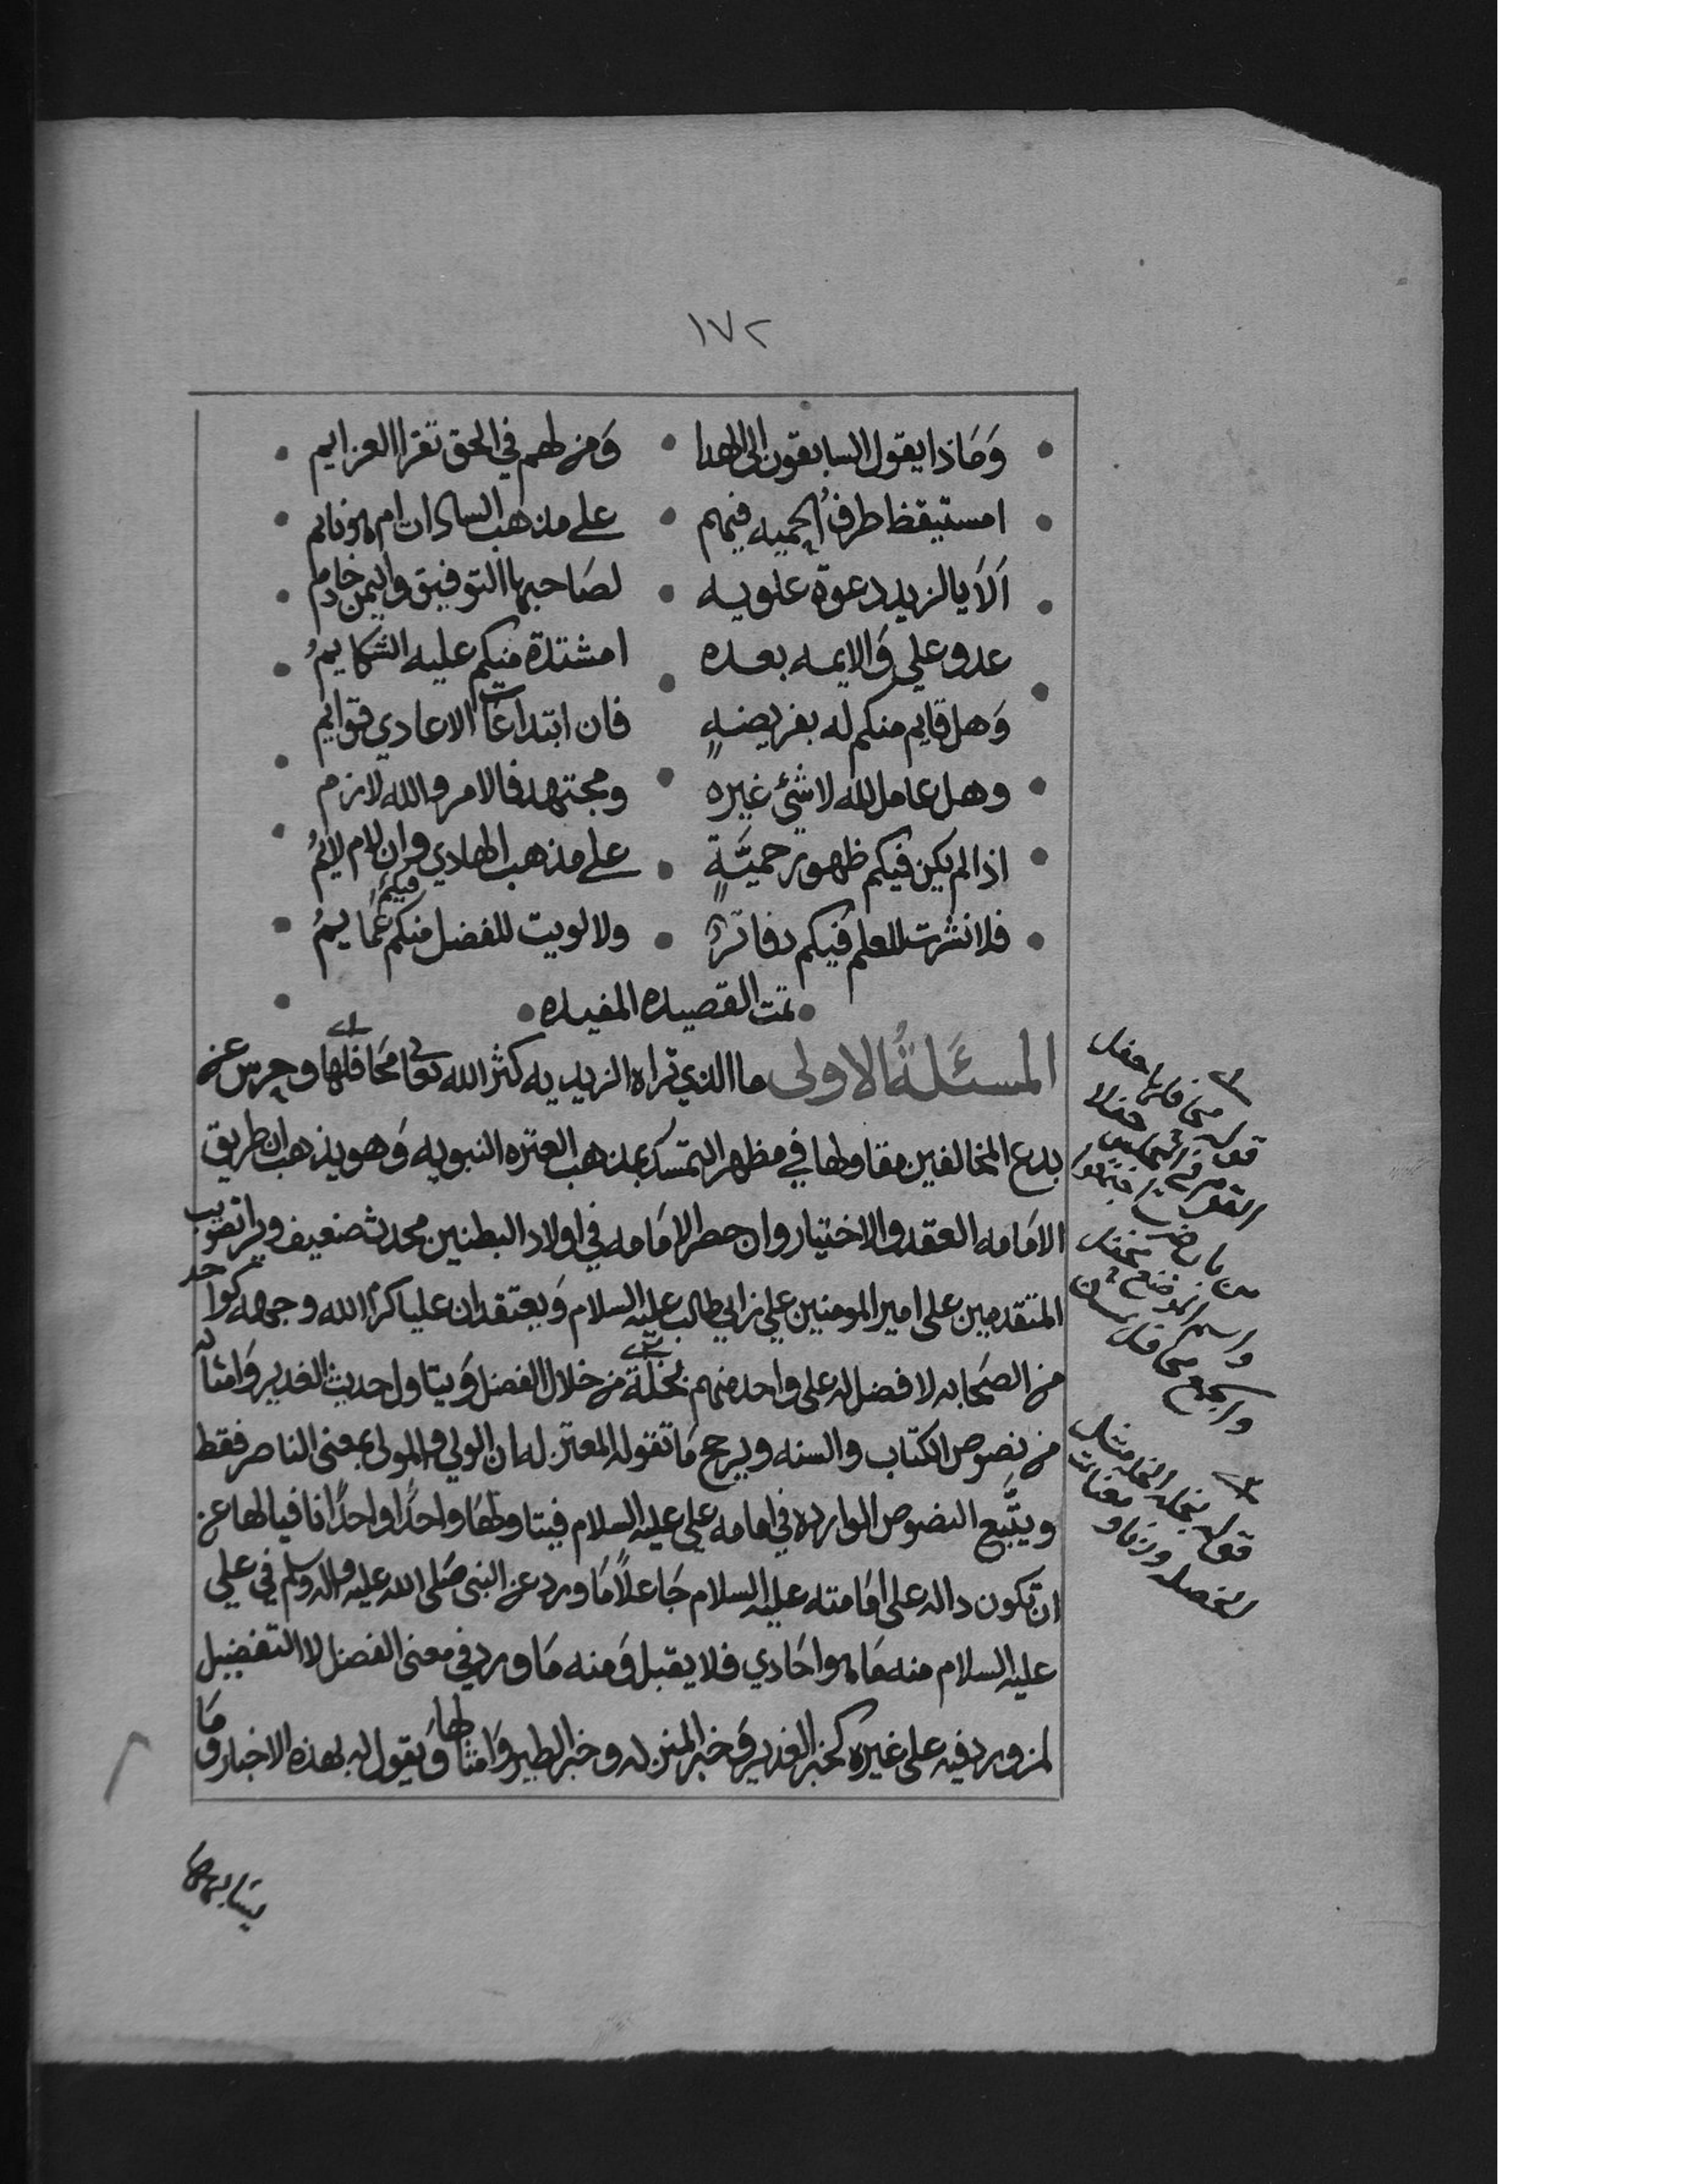 ١٧٢
وَمَاذا يقول السابقون الى الهدا • وَمن لهم في الحق تقرا العزايم
امستيقظ طرفُ الحميه فيهم • على مذهب السادات ام هو نايم
اَلاَ يالزيد دعوة علويه • لصَاحبها التوفيق واليمن خادم
عدو علي وَالايمه بعده • امشتدة منكم عليه الشكايمُ
وَهل قايم منكم له بفريضةٍ • فان ابتداعَات الاعادي قوايم
وهل عامل لله لا شئ غيره • ومجتهد فالامر والله لازم
اذا لم يكن فيكم ظهور حميَّةٍ • على مذهب الهادي وان لام لايمُ
فلا نشرت للعلم فيكم دفاترٌ • ولا لويت للفضل منكم عَمَايمُ
فيكم
• تمت القصيده المفيده •
المسئلةُ الاولى ما الذي تراه الزيديه كثر الله تعالى محَافلها وحرس عن
بدع المخالفين مقاولها في مظهر التمسك بمذهب العتره النبويه وَهو يذهب ان طريق
الامَامه العقد والاختيار وان حصر الامَامه في اولاد البطنين محدث ضعيف ويرا تصويب
المتقدمين على امير المومنين علي بن ابي طالب عليه السلام وَيعتقد ان عليا كرم الله وجهه كواحد
من الصَحابه لا فضل له على واحد منهم بخلة من خلال الفضل وَيتاول حديث الغدير وَامثاله
من نصوص الكتاب والسنه ويرجح مَا تقوله المعتزله ان الولي والمولى بمعنى الناصر فقط
ويتَّبع النصوص الوارده في امامه علي عليه السلام فيتاولهَا واحدًا واحدًا نافيا لها عن
ان تكون داله على امَامته عليه السلام جَاعلاً مَا ورد عن النبي صَلى الله عليه واله وسلم في علي
عليه السلام منه مَا هو احَادي فلا يقبل وَمنه مَا ورد في معنى الفضل لا التفضيل
لمن ورد فيه على غيره كخبر الغدير وَخبر المنزله وخبر الطير وَامثالها وَيقول له بهذه الاخبار ومَا
يشابهها
قوله محافلها حفل
القوم في المجلس حفلا
من باب ضرب اجتمعوا
واسم الموضع محفل
والجمع محافل
قوله بخله الخله مثل
الخصله وزنا ومعنا